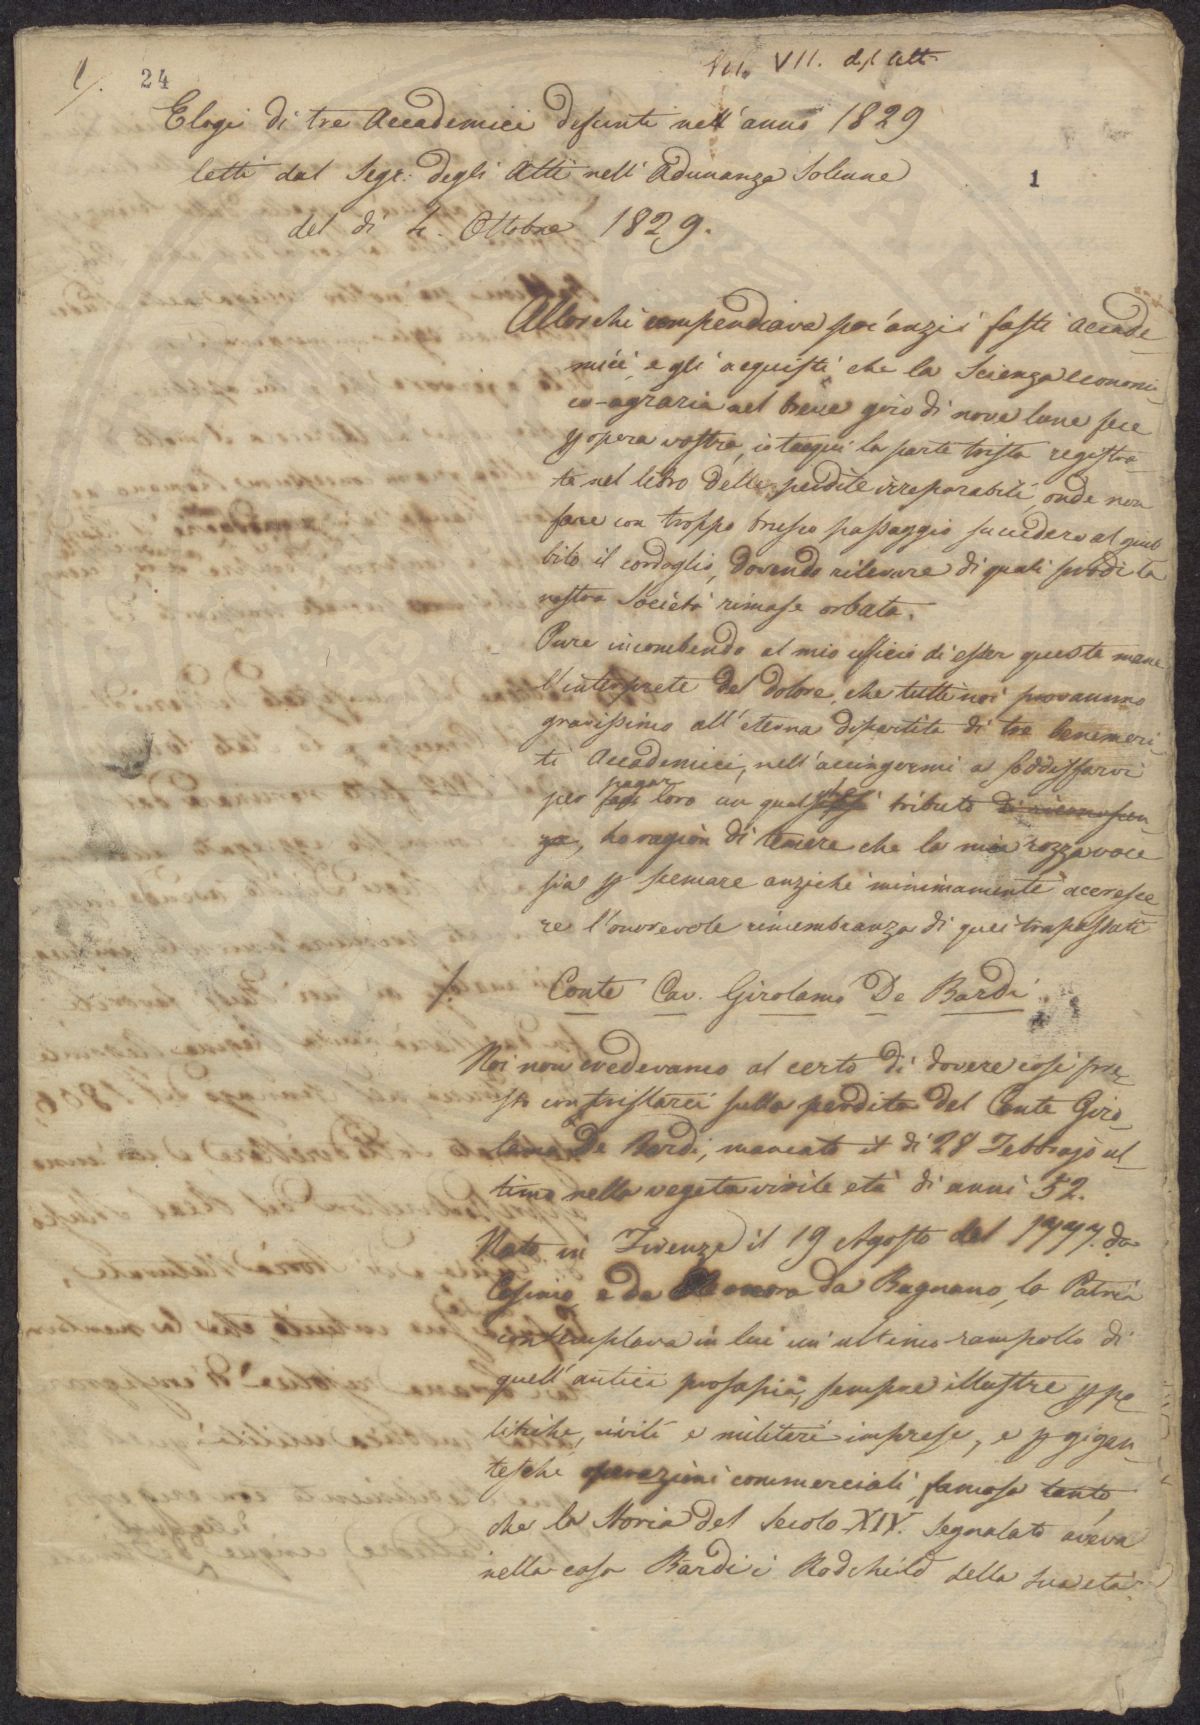 Vol. VII. degl Atti
1/. 24
Elogi di tre Accademici defunti nell'anno 1829
letti dal Segr: degli Atti nell'Adunanza Solenne
1
del dì 4. Ottobre 1829.
Allorchè compendiava poc'anzi i fasti Accade-
mici, e gli acquisti, che la Scienza economi-
co-agraria nel breve giro di nove lune fece
p opera vostra, io tacqui la parte trista registra-
ta nel libro delle perdite irreparabili, onde non
fare con troppo brusco passaggio succedere al giub-
bilo il cordoglio, dovendo rilevare di quali prodi la
nostra Società rimase orbata.
Pure incombendo al mio uficio di esser questa mane
l'interprete del dolore, che tutti noi provammo
gravissimo all'eterna dipartita di tre benemeri-
ti Accademici, nell'accingermi a soddisfarvi
pagar
per far loro un qualsissia tributo di riconoscen-
za, ho ragion di temere che la mia rozza voce
sia p scemare anzichè minimamente accresce-
re l'onorevole rimembranza di quei trapassati
1. Conte Cav. Girolamo De Bardi.
Noi non credevamo al certo di dovere così pre-
sto contristarci sulla perdita del Conte Giro-
lamo De Bardi, mancato il dì 28 Febbrajo ul-
timo nella vegeta virile età di anni 52.
Nato in Firenze il 19 Agosto del 1777. da
Cosimo, e da Eleonora da Bagnano, la Patria
contemplava in lui un'ultimo rampollo di
quell'antica prosapia, sempre illustre p po-
litiche, civili e militari imprese, e p gigan-
tesche operazioni commerciali, famosa tanto
che la Storia del Secolo XIV. segnalato aveva
nella casa Bardi i Rodchild della sua età